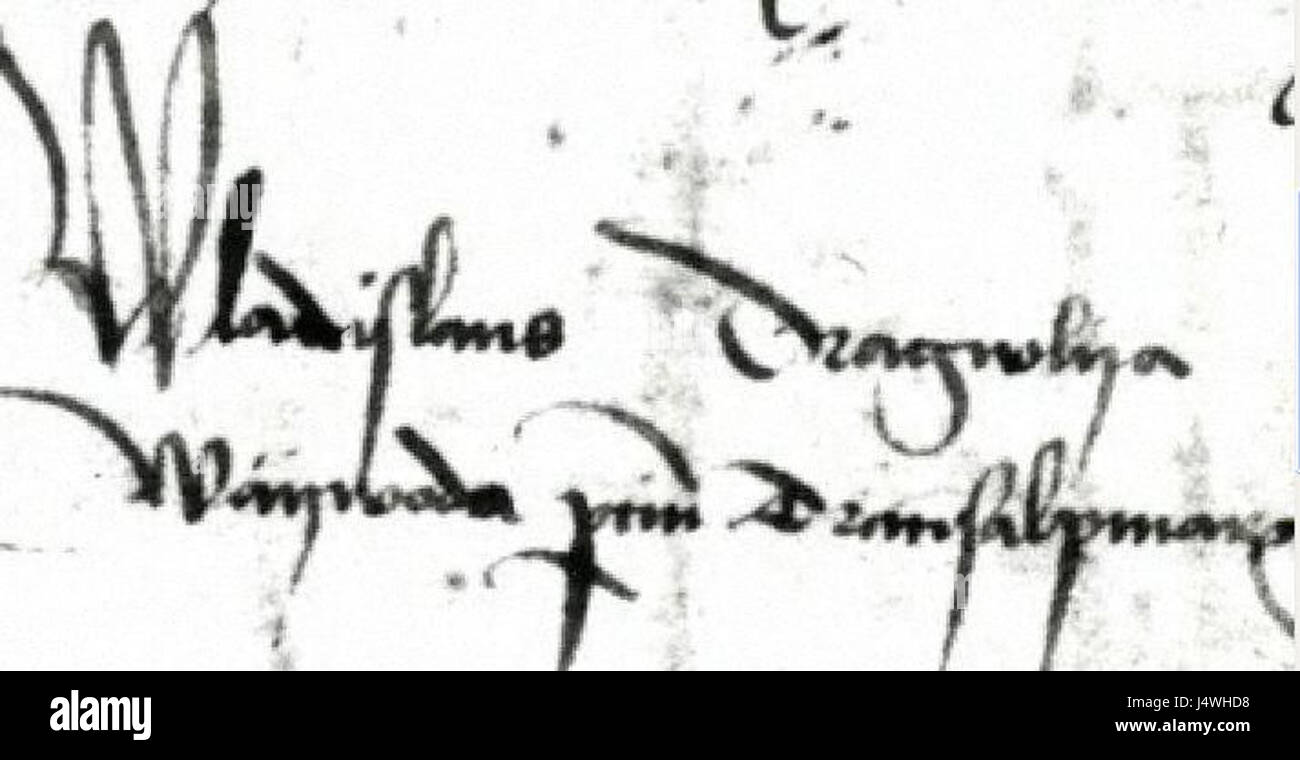 Wladislaus Dragwlya
Waywoda Transalpinar
alamy
Image ID: J4WHD8
www.alamy.com